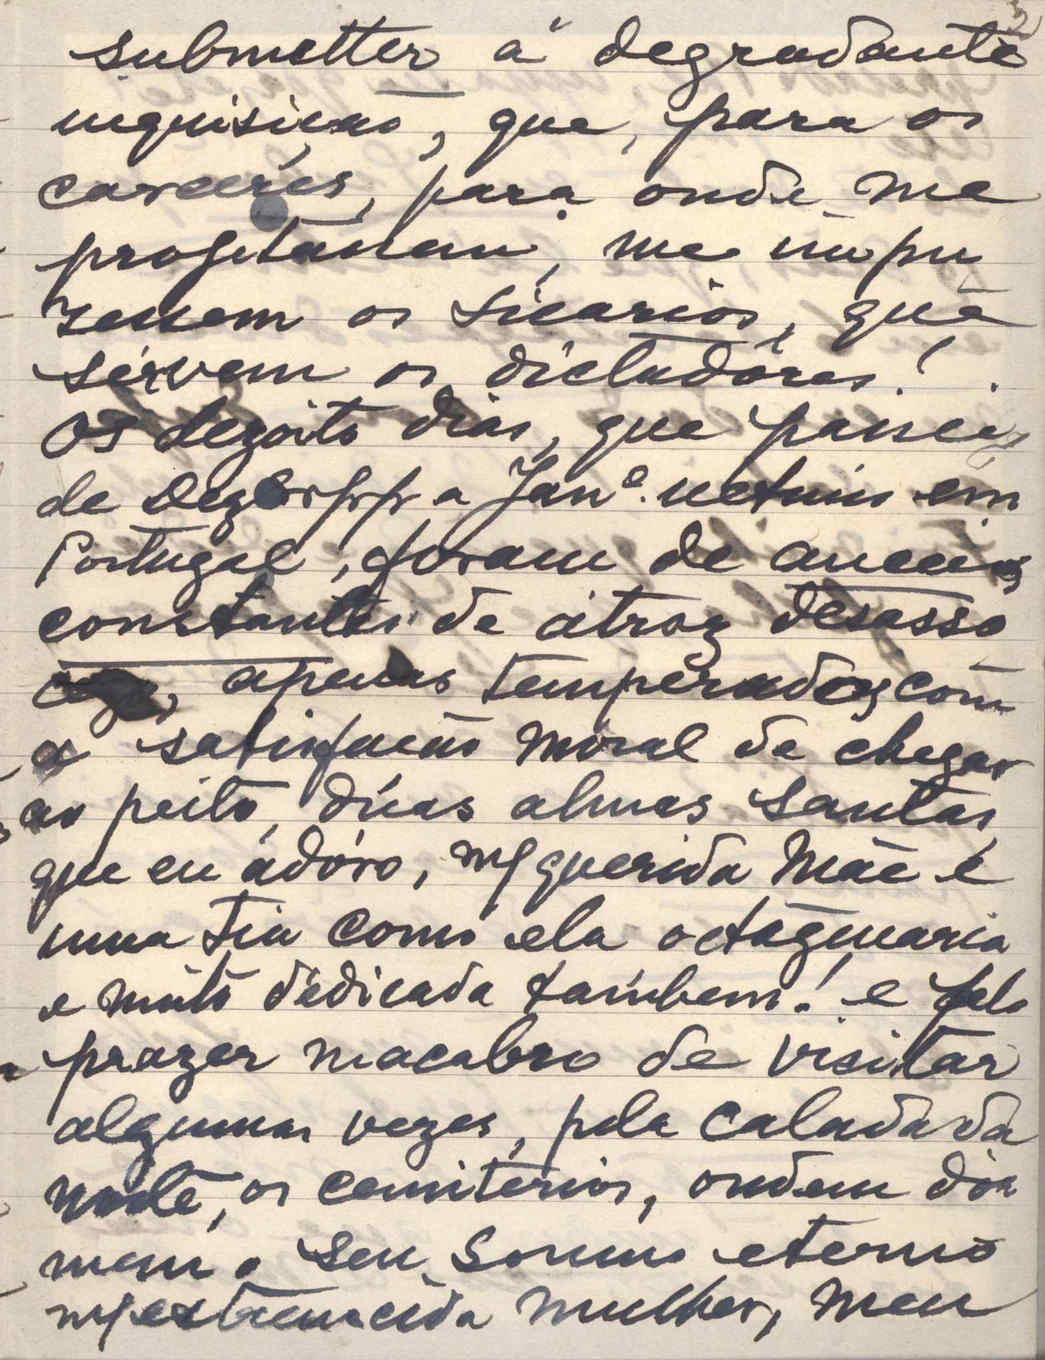 2
submetter á degradante
inquisição, que, para os
carceres, para onde me
projetáram, me impu
zessem os sicarios, que
servem os dictadores!
Os dezoito dias, que passei
de Dezbr p.p. a Janº. ultimo em
Portugal, foram de anceios
constantes de atroz desasso
cego, apenas temperados com
a satisfação moral de chegar
ao peito, duas almas santas
que eu adóro, mª querida Mãe e
uma tia como ela octagenaria
e muito dedicada tambem! e pelo
prazer macabro de visitar
algumas vezes, pela calada da
noite, os cemiterios, ondem dor
mem o seu somno eterno
mª extremecida mulher, meu